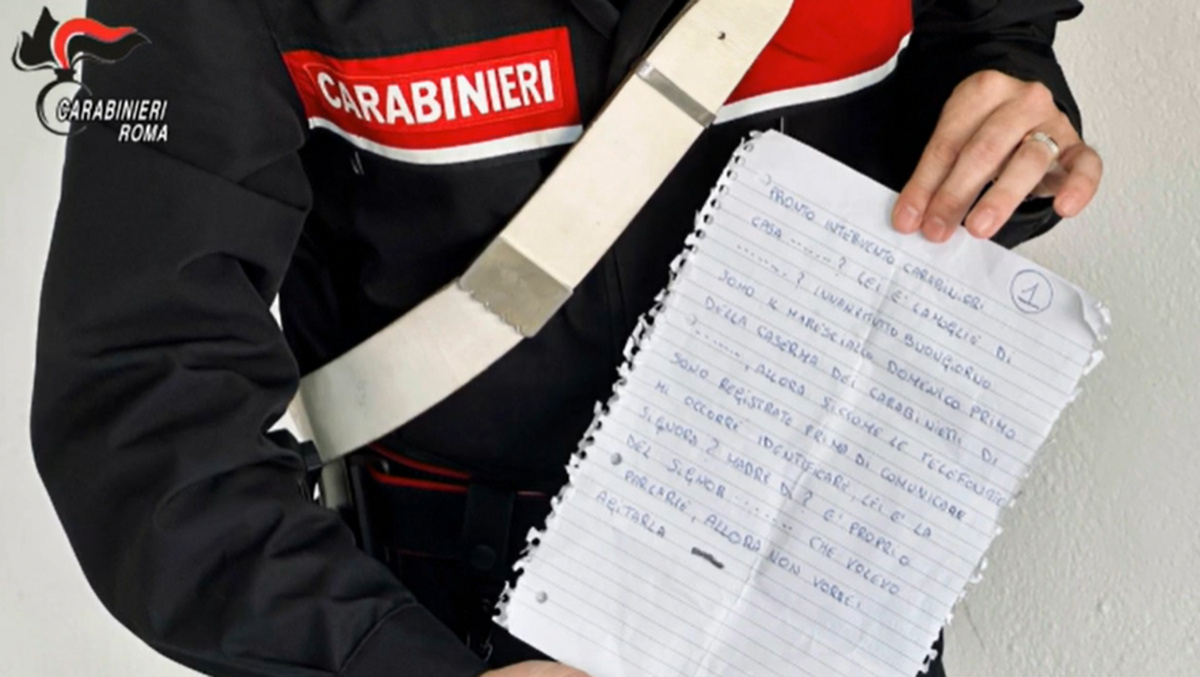 CARABINIERI
ROMA
CARABINIERI
1
PRONTO INTERVENTO CARABINIERI
CASA ........? LEI E' LA MOGLIE DI
........? INNANZITUTTO BUONGIORNO
SONO IL MARESCIALLO DOMENICO PRIMO
DELLA CASERMA DEI CARABINIERI DI
........, ALLORA SICCOME LE TELEFONATE
SONO REGISTRATE PRIMA DI COMUNICARE
MI OCCORRE IDENTIFICARE, LEI E' LA
SIGNORA? MADRE DI? E' PROPRIO
DEL SIGNOR ........ CHE VOLEVO
PARLARLE, ALLORA NON VORREI
AGITARLA